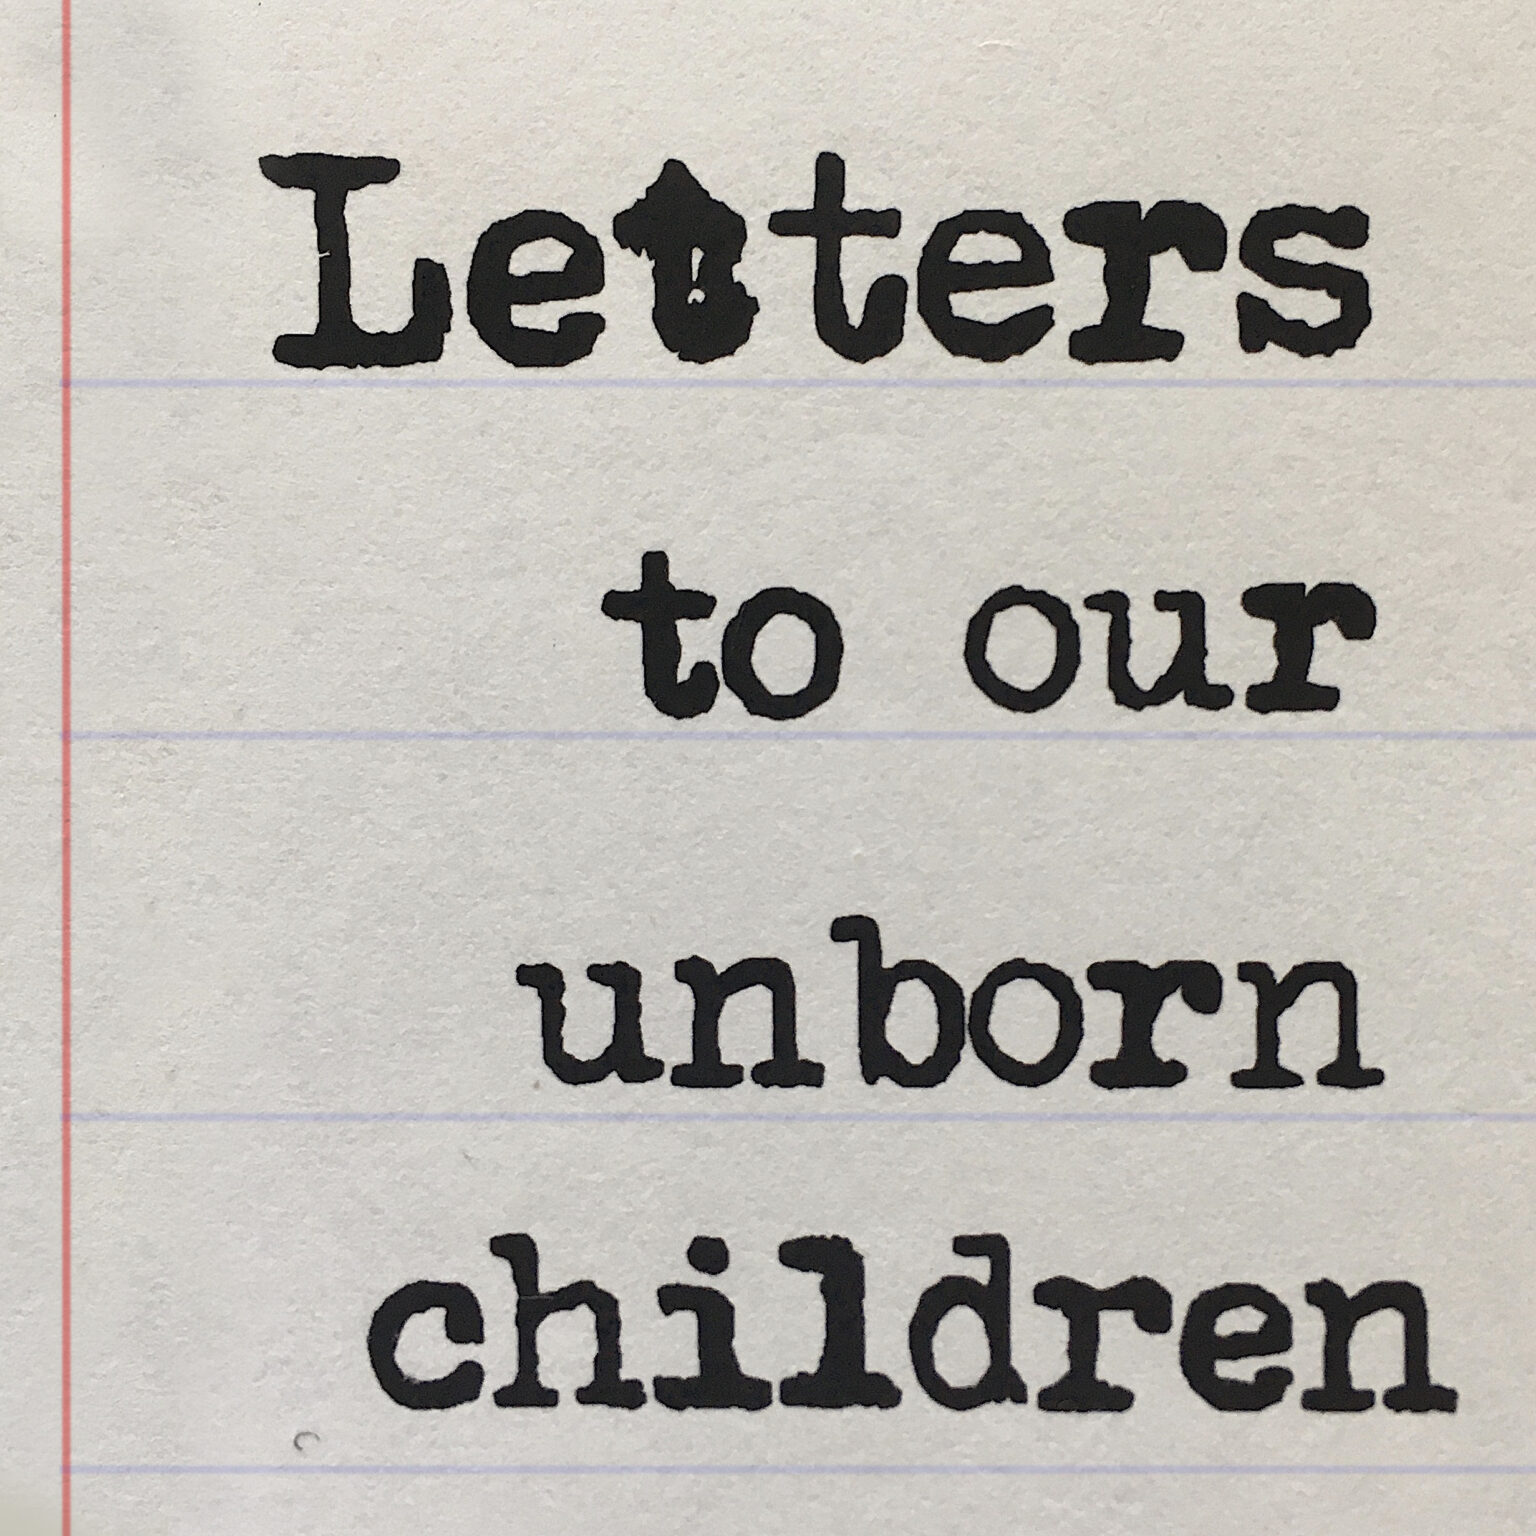 Letters
to our
unborn
children